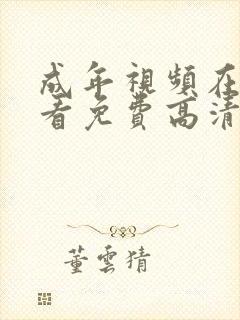 成年視頻在
看免費高清
董雲猜